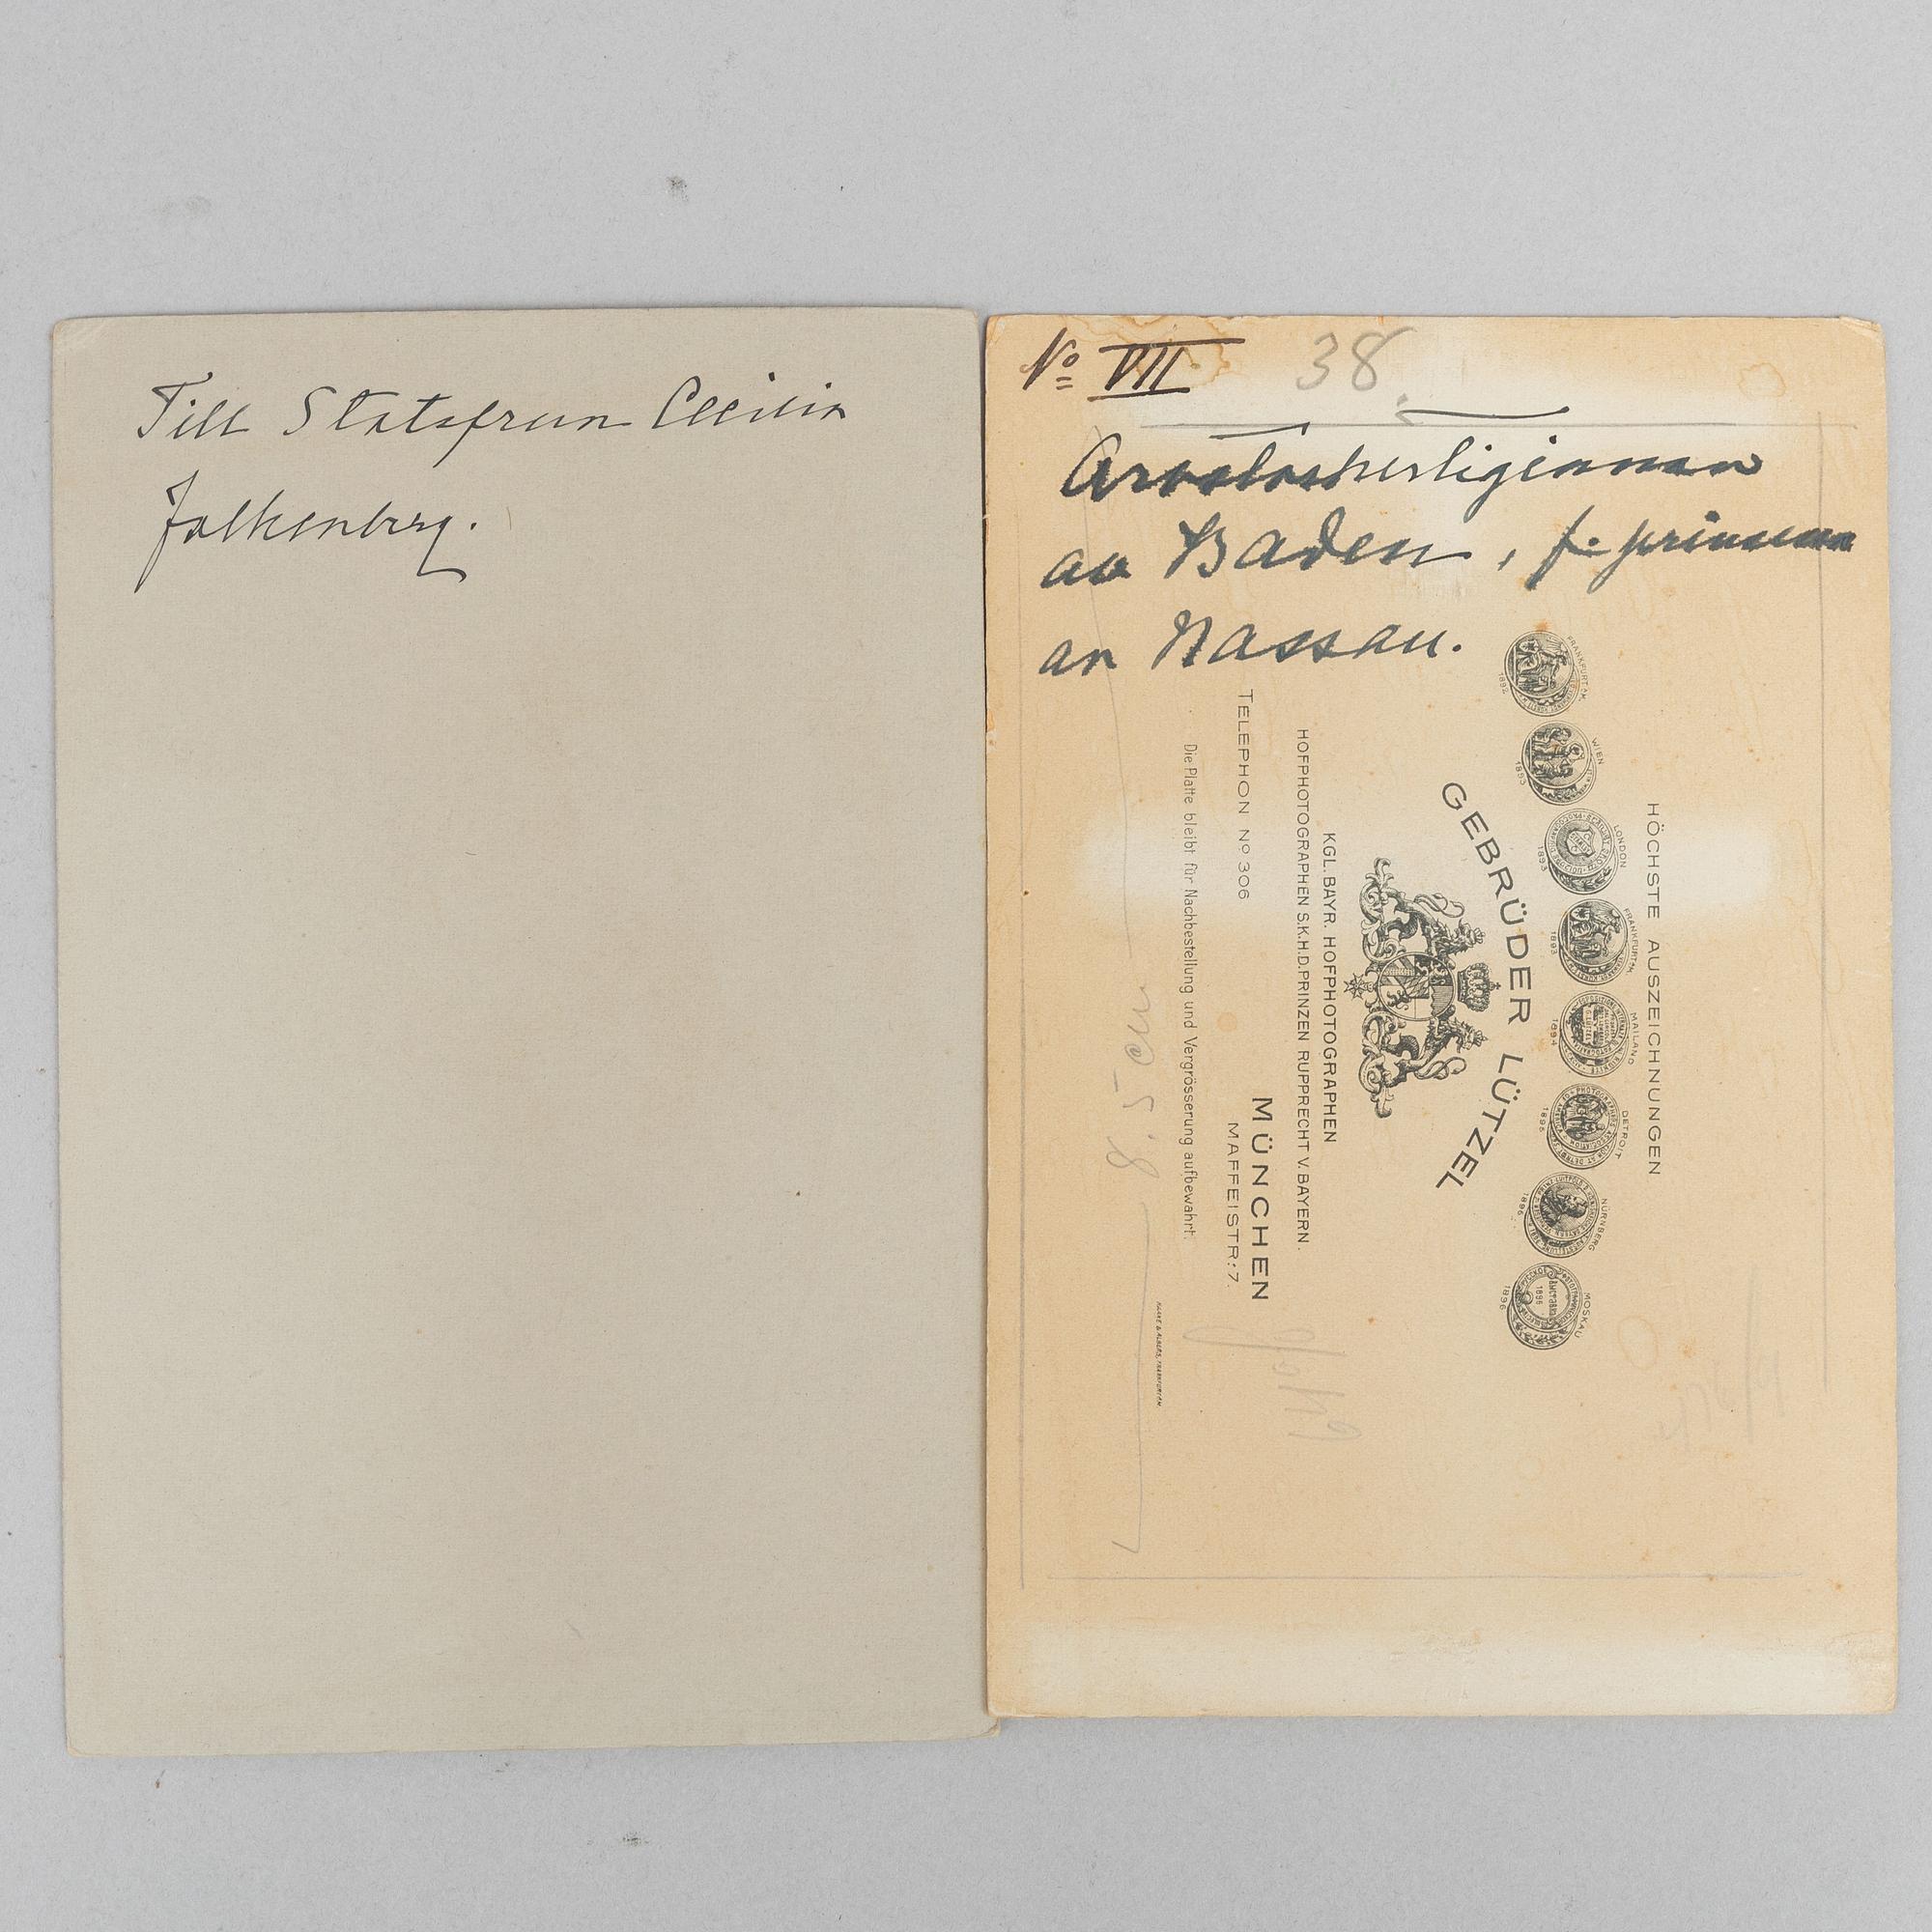 Till Statsfrun Cecilia
Falkenberg.
No VII
38.
Arvstorhertiginnan
av Baden, f. prinsessa
av Nassau.
HÖCHSTE AUSZEICHNUNGEN
FRANKFURT A/M. 1892
WIEN 1893
LONDON 1893
FRANKFURT A/M. 1893
MAILAND 1894
DETROIT 1895
NÜRNBERG 1896
MOSKAU 1896
GEBRÜDER LÜTZEL
KGL. BAYR. HOFPHOTOGRAPHEN
HOFPHOTOGRAPHEN S.K.H.D. PRINZEN RUPPRECHT V. BAYERN.
MÜNCHEN
TELEPHON No 306
MAFFEISTR: 7.
Die Platte bleibt für Nachbestellung und Vergrösserung aufbewahrt.
HAAKE & ALBERS, FRANKFURT A/M.
8.5 cm